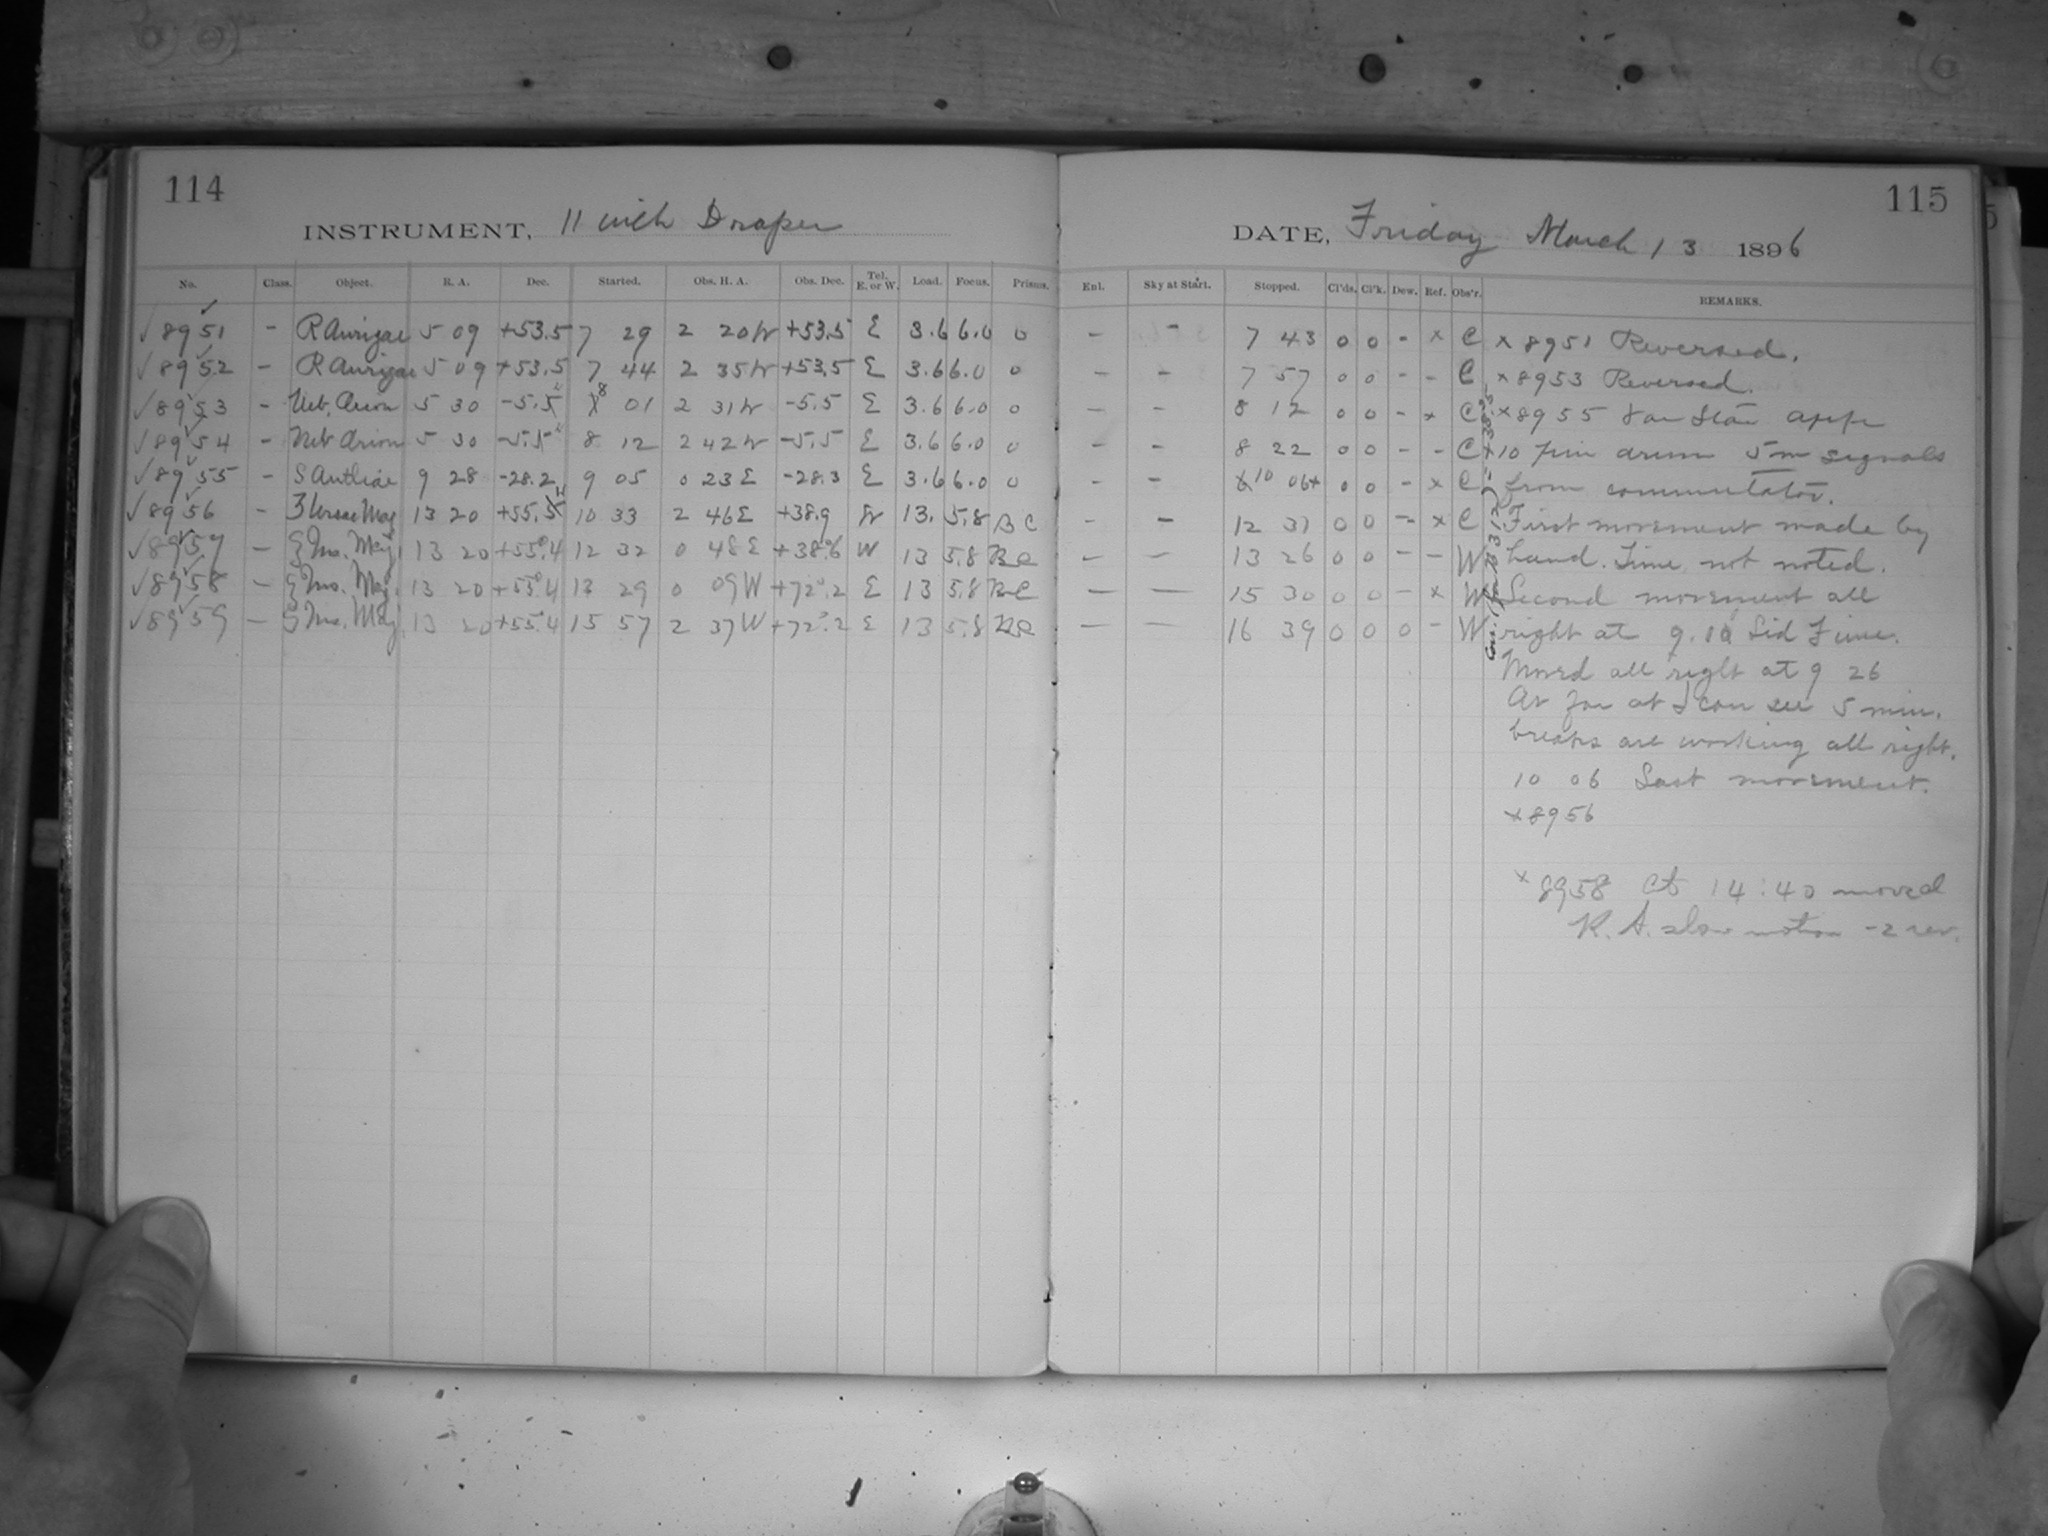 114
INSTRUMENT, 11 inch Draper
No. Class. Object. R. A. Dec. Started. Obs. H. A. Obs. Dec. Tel. E. or W. Load. Focus. Prisms.
√ 8951 - R Aurigae 5 09 +53.5 7 29 2 20 W +53.5 E 3.6 6.0 0
√ 8952 - R Aurigae 5 09 +53.5 7 44 2 35 W +53.5 E 3.6 6.0 0
√ 8953 - Neb. Orion 5 30 -5.5 8 01 2 31 W -5.5 E 3.6 6.0 0
√ 8954 - Neb Orion 5 30 -5.5 8 12 2 42 W -5.5 E 3.6 6.0 0
√ 8955 - S Antliae 9 28 -28.2 9 05 0 23 E -28.3 E 3.6 6.0 0
√ 8956 - ζ Ursae Maj 13 20 +55.5 10 33 2 46 E +38.9 W 13. 5.8 B C
√ 8957 - ζ Urs. Maj. 13 20 +55°.4 12 32 0 48 E +38°.6 W 13 5.8 BC
√ 8958 - ζ Urs. Maj. 13 20 +55°.4 13 29 0 09 W +72°.2 E 13 5.8 BC
√ 8959 - ζ Urs. Maj. 13 20 +55°.4 15 57 2 37 W +72°.2 E 13 5.8 BC
115
DATE, Friday March 13 1896
Enl. Sky at Start. Stopped. Cl'ds. Cl'k. Dew. Ref. Obs'r. REMARKS.
- - 7 43 0 0 - x C x 8951 Reversed.
- - 7 57 0 0 - - C x 8953 Reversed.
- - 8 12 0 0 - x C x 8955 Var Star app
- - 8 22 0 0 - - C x 10 pin drum 5m signals
- - 10 06 + 0 0 - x C from commutator.
- - 12 31 0 0 - x C First movement made by
- - 13 26 0 0 - - W hand. Time not noted.
- - 15 30 0 0 - x W Second movement all
- - 16 39 0 0 0 - W right at 9.10 Sid Time.
Moved all right at 9 26
As far as I can see 5 min.
breaks are working all right.
10 06 Last movement.
x 8956
x 8958 At 14:40 moved
R. A. slow motion -2 rev.